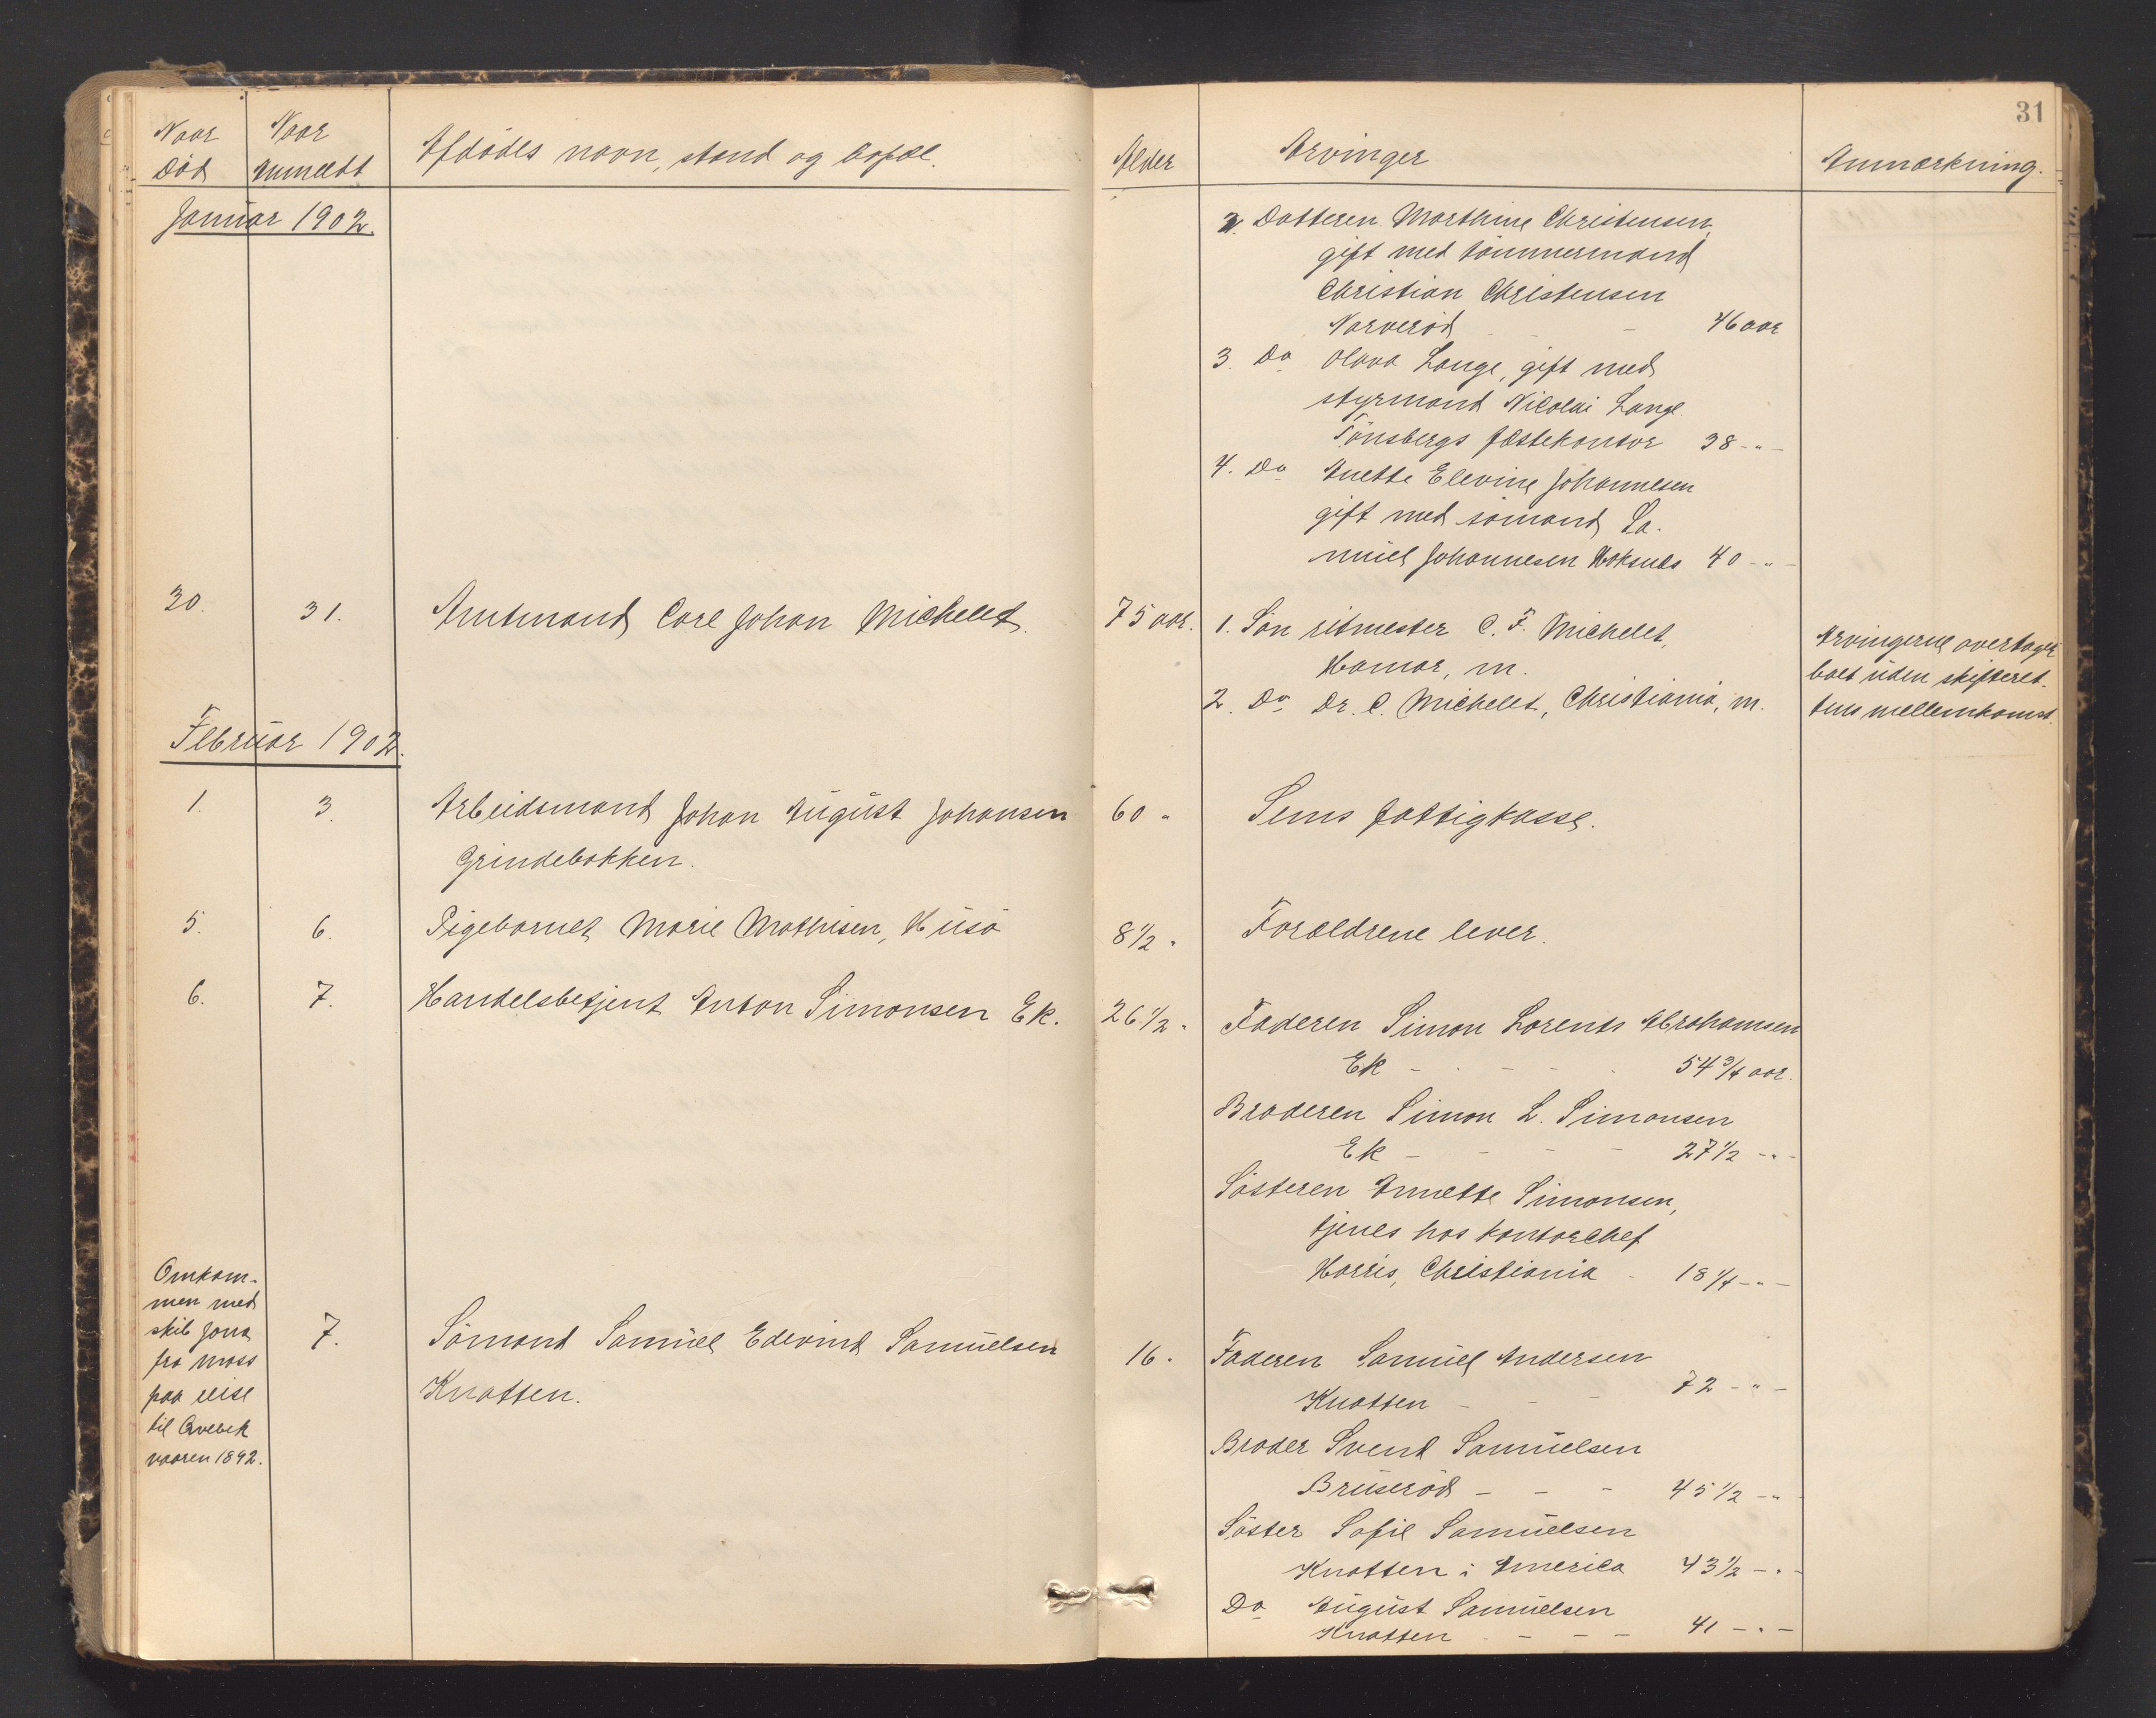 31
Naar Død
Naar anmeldt
Afdødes navn, stand og bopæl.
Alder
Arvinger
Anmærkning.
Januar 1902.
2. Datteren Marthine Christensen,
gift med tømmermand
Christian Christensen
Narverød - - 46 aar
3. Do Olava Lange, gift med
styrmand Nicolai Lange.
Tønsbergs fæstekontor 38 - " -
4. Do Anette Elevine Johannesen
gift med sømand Sa-
muel Johannesen Hoksnes 40 - " -
30. 31. Amtmand Carl Johan Michelet. 75 aar. 1. Søn ritmester C. F. Michelet,
Hamar, m.
2. Do Dr. C. Michelet, Christiania, m.
Arvingerne overtager
boet uden skifteret-
tens mellemkomst.
Februar 1902.
1. 3. Arbeidsmand Johan August Johansen 60 " Sems fattigkasse.
Grindebakken.
5. 6. Pigebarnet Marie Mathisen, Husø 8 1/2 " Forældrene lever.
6. 7. Handelsbetjent Anton Simonsen Ek. 26 1/2 " Faderen Simon Lorents Abrahamsen
Ek - - - - 54 3/4 aar.
Broderen Simon L. Simonsen
Ek - - - - 27 1/2 - " -
Søsteren Annette Simonsen,
tjenes hos kontorchef
Harris, Christiania - 18 1/4 - " -
Omkom-
men med
skib Jona
fra Moss
paa reise
til Qvebek
vaaren 1892.
7. Sømand Samuel Edevind Samuelsen 16 " Faderen Samuel Andersen
Knatten.
Knatten - - - 72 - " -
Broder Svend Samuelsen
Bruserød - - - 45 1/2 - " -
Søster Sofie Samuelsen
Knatten i America 43 1/2 - " -
Do August Samuelsen
Knatten - - - - 41 - " -